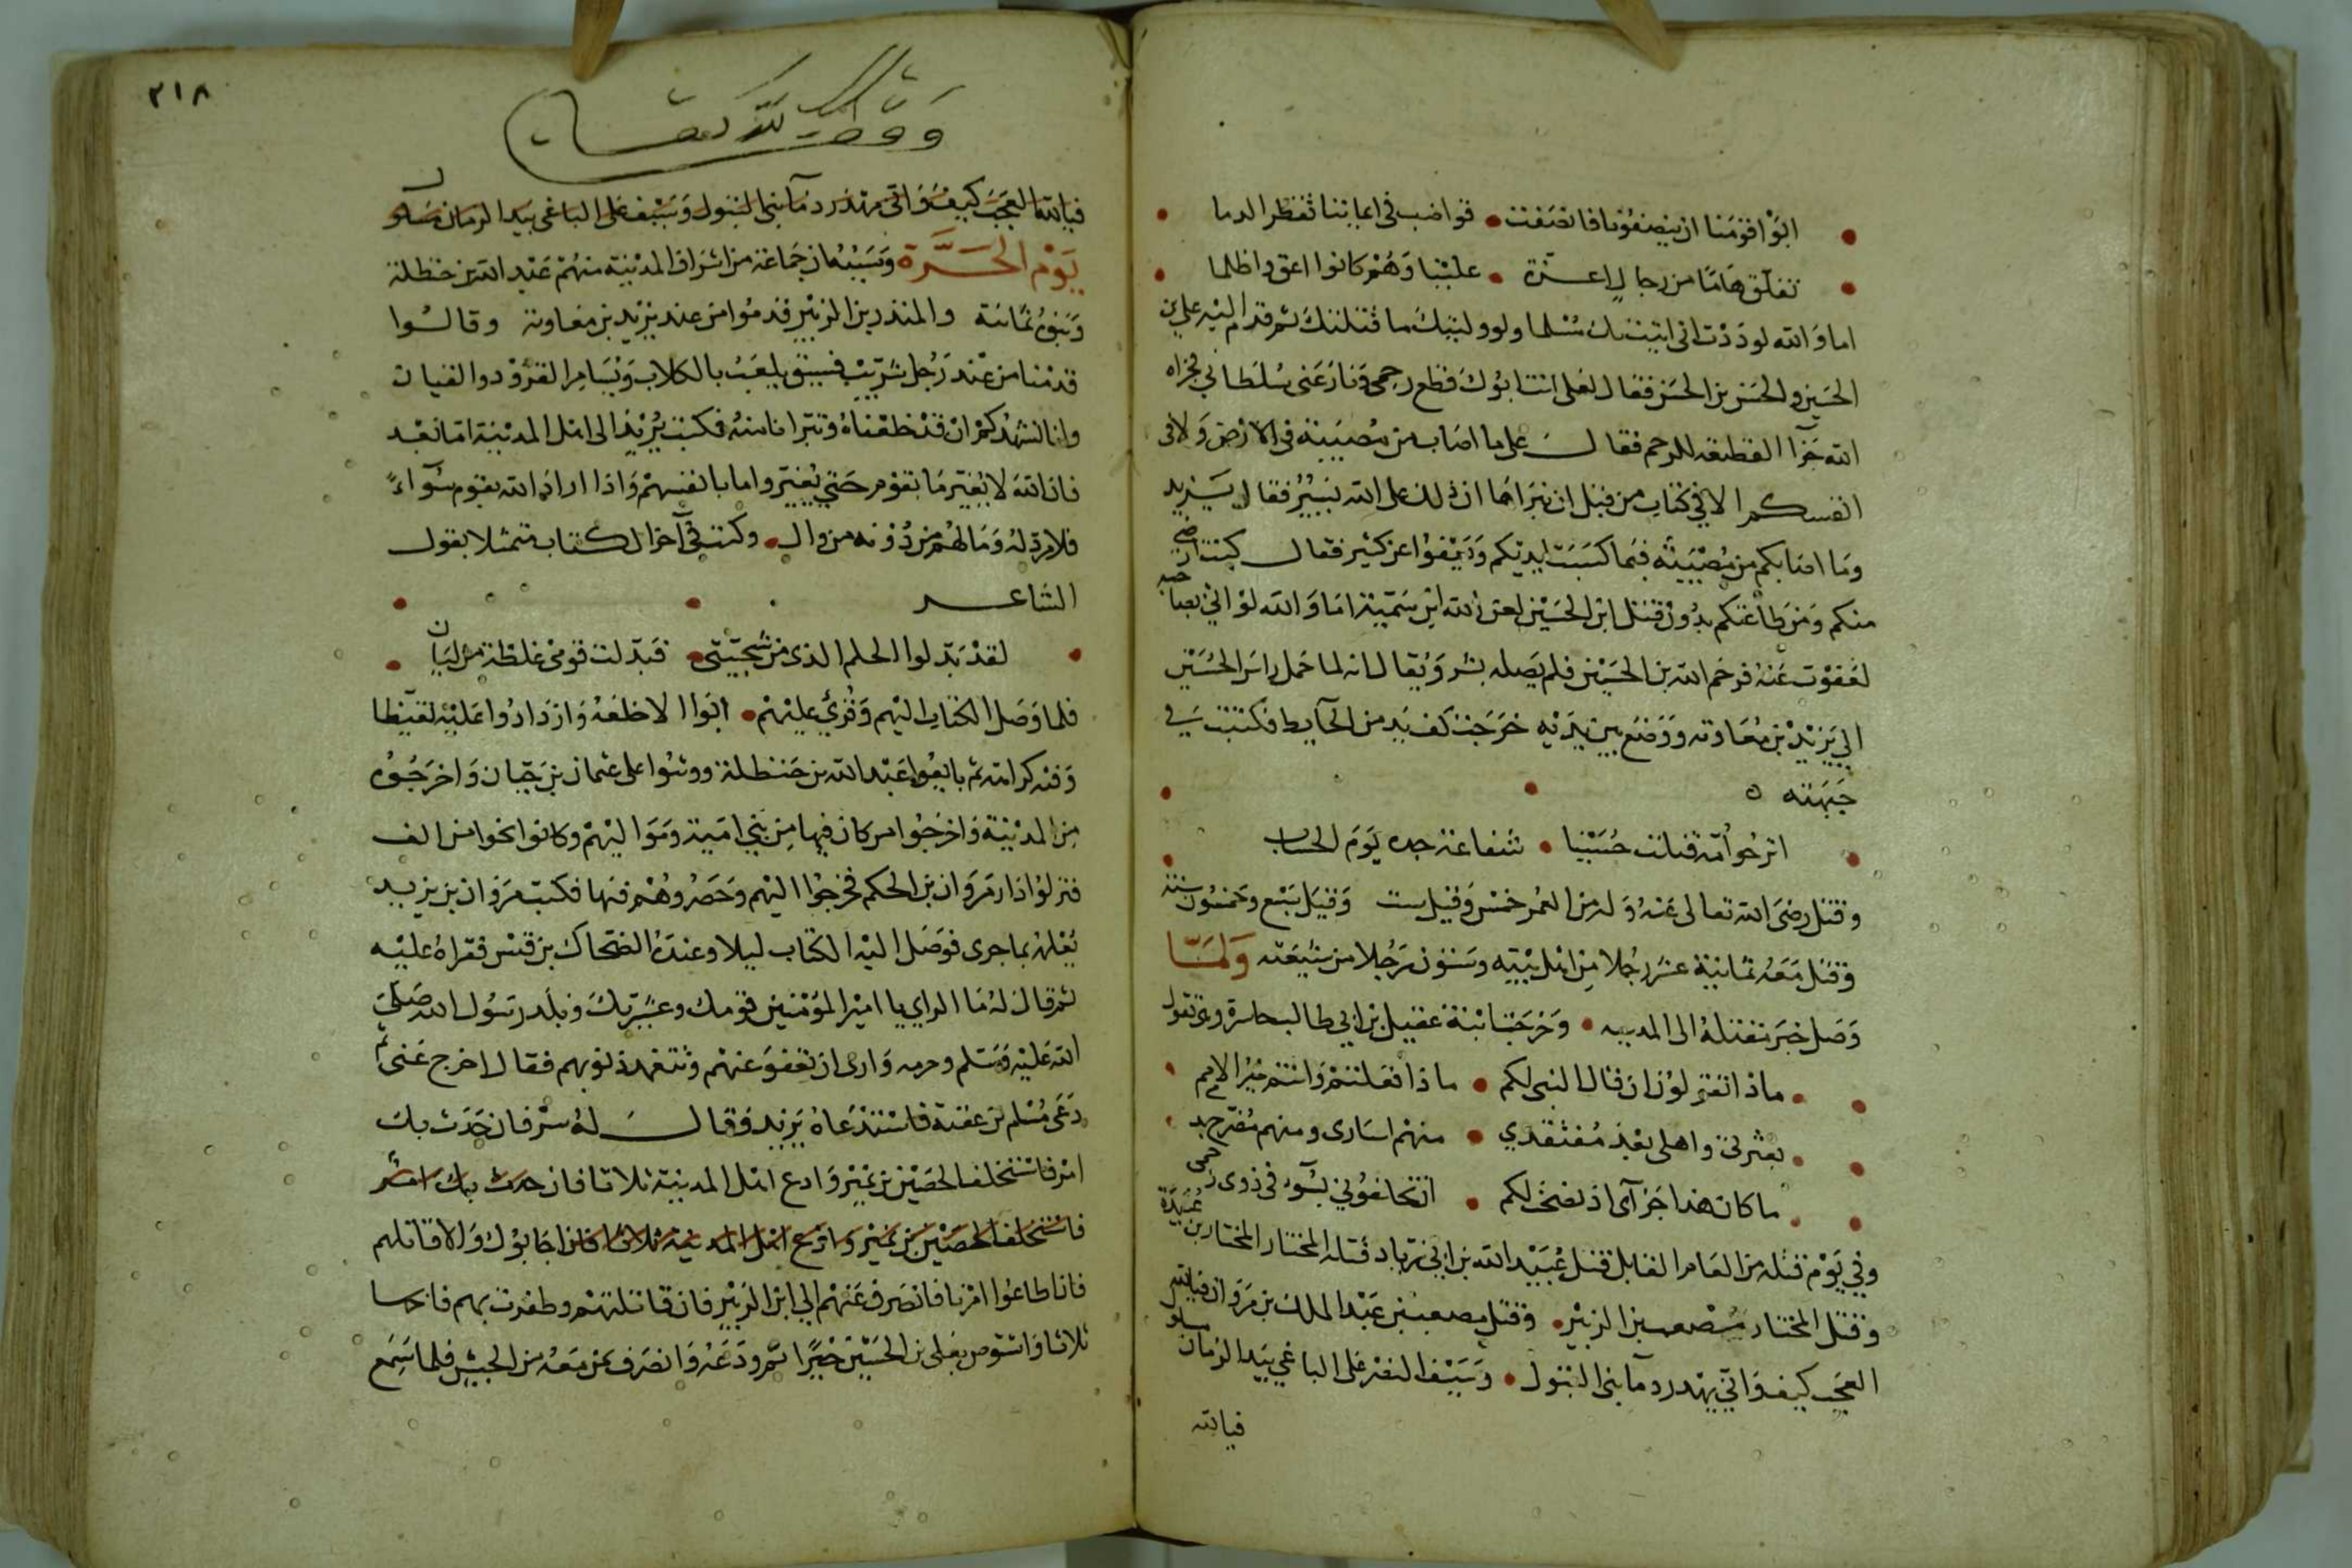 ابوا قومنا ان ينصفونا فانصفت • قواضب في ايماننا تقطر الدما
تفلق هاما من رجال اعزة • علينا وهم كانوا اعق واظلما
اما والله لوددت اني اتيتك مسلما ولو وليتك ما قتلتك ثم قدم اليه علي بن
الحسين والحسن بن الحسن فقال لعلي انت ابوك قطع رحمي ونازعني سلطاني فجزاه
الله جزا القطيعه للرحم فقال علي ما اصاب من مصيبة في الارض ولا في
انفسكم الا في كتاب من قبل ان نبراها ان ذلك على الله يسير فقال يزيد
وما اصابكم من مصيبة فبما كسبت ايديكم ويعفوا عن كثير فقال كنت ارضى
منكم ومن طاعتكم بدون قتل ابن الحسين لعن الله ابن سمية اما والله لو اني صاحبه
لعفوت عنه فرحم الله بن الحسين فلم يصله بشر ويقال انه لما حمل راس الحسين
الى يزيد بن معاوية ووضع بين يديه خرجت كف يد من الحايط فكتبت في
جبهته
اترجوا امة قتلت حسينا • شفاعة جده يوم الحساب
وقتل رضي الله تعالى عنه وله من العمر خمس وقيل ست وقيل سبع وخمسون سنة
وقتل معه ثمانية عشر رجلا من اهل بيته وستون رجلا من شيعته ولما
وصل خبر مقتله الى المدينه • وخرجت ابنة عقيل بن ابي طالب حاسرة وهي تقول
ماذا تقولون ان قال النبي لكم • ماذا فعلتم وانتم خير الامم
بعترتي واهلي بعد مفتقدي • منهم اسارى ومنهم مضرج بدم
ما كان هذا جزآي اذ نصحت لكم • ان تخلفوني بسوء في ذوي رحمي
وفي يوم قتله من العام القابل قتل عبيد الله بن ابي زياد قتله المختار المختار بن عبيدة
وقتل المختار مصعب بن الزبير • وقتل مصعب بن عبد الملك بن مروان فيالله
العجب كيف واتى يهدر دمآ بني البتول • وسيف النفر على الباغي بيد الزمان مسلول
فيالله
٣١٨
وقف لله تعالى
فيالله العجب كيف واتى يهدر دمآ بني البتول وسيف على الباغي بيد الزمان مسلول
يوم الحرة وسببه ان جماعة من اشراف المدينة منهم عبد الله بن حنظلة
وبنوه ثمانية والمنذر بن الزبير قدموا من عند يزيد بن معاوية وقالوا
قدمنا من عند رجل شريب فسيق يلعب بالكلاب ويسامر القرود والقيان
وانا نشهدكم ان قد خلعناه وتبرانا منه فكتب يزيد الى اهل المدينة اما بعد
فان الله لا يغير ما بقوم حتى يغيروا ما بانفسهم واذا اراد الله بقوم سوآء
فلا مرد له وما لهم من دونه من وال • وكتب في آخر الكتاب متمثلا بقول
الشاعر
لقد بدلوا الحلم الذي من سجيتي • فبدلت قومي غلظة من ليان
فلما وصل الكتاب اليهم وقرئ عليهم • ابوا الا خلعه وازدادوا عليه تغيظا
وفيه كرامته ثم بايعوا عبد الله بن حنظلة ووثبوا على عثمان بن حيان واخرجوه
من المدينة واخرجوا من كان فيها من بني امية ومواليهم وكانوا نحوا من الف
فنزلوا دار مروان بن الحكم فخرجوا اليهم وحصروهم فيها فكتب مروان بن يزيد
يعلمه بما جرى فوصل اليه الكتاب ليلا وعنده الضحاك بن قيس فقراه عليه
ثم قال له ما الراي يا امير المؤمنين قومك وعشيرتك وبلد رسول الله صلى
الله عليه وسلم وحرمه وارى ان تعفو عنهم وتتغمد ذنوبهم فقال اخرج عني ثم
دعى مسلم بن عقبة فاستدعاه يزيد فقال له سر فان حدث بك
امر فاستخلف الحصين بن نمير وادع اهل المدينة ثلاثا فان حدث بك امر
فاستخلف الحصين بن نمير وادع اهل المدينة ثلاثا فان اجابوك والا قاتلهم
فان اطاعوا امرنا فانصرف عنهم الى ابن الزبير فان قاتلتهم وظفرت بهم
ثلاثا واستوص بعلي بن الحسين خيرا ثم ودعه وانصرف بمن معه من الجيش فلما سمع